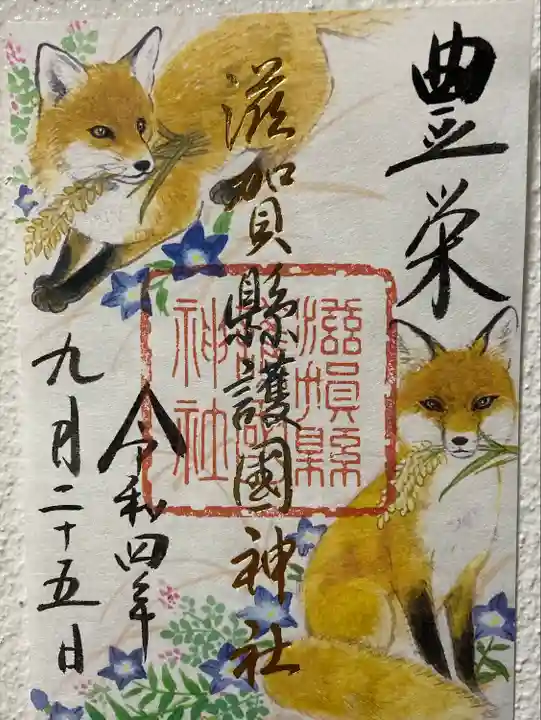 豊栄
滋賀縣護國神社
滋賀縣護國神社
令和四年
九月二十五日